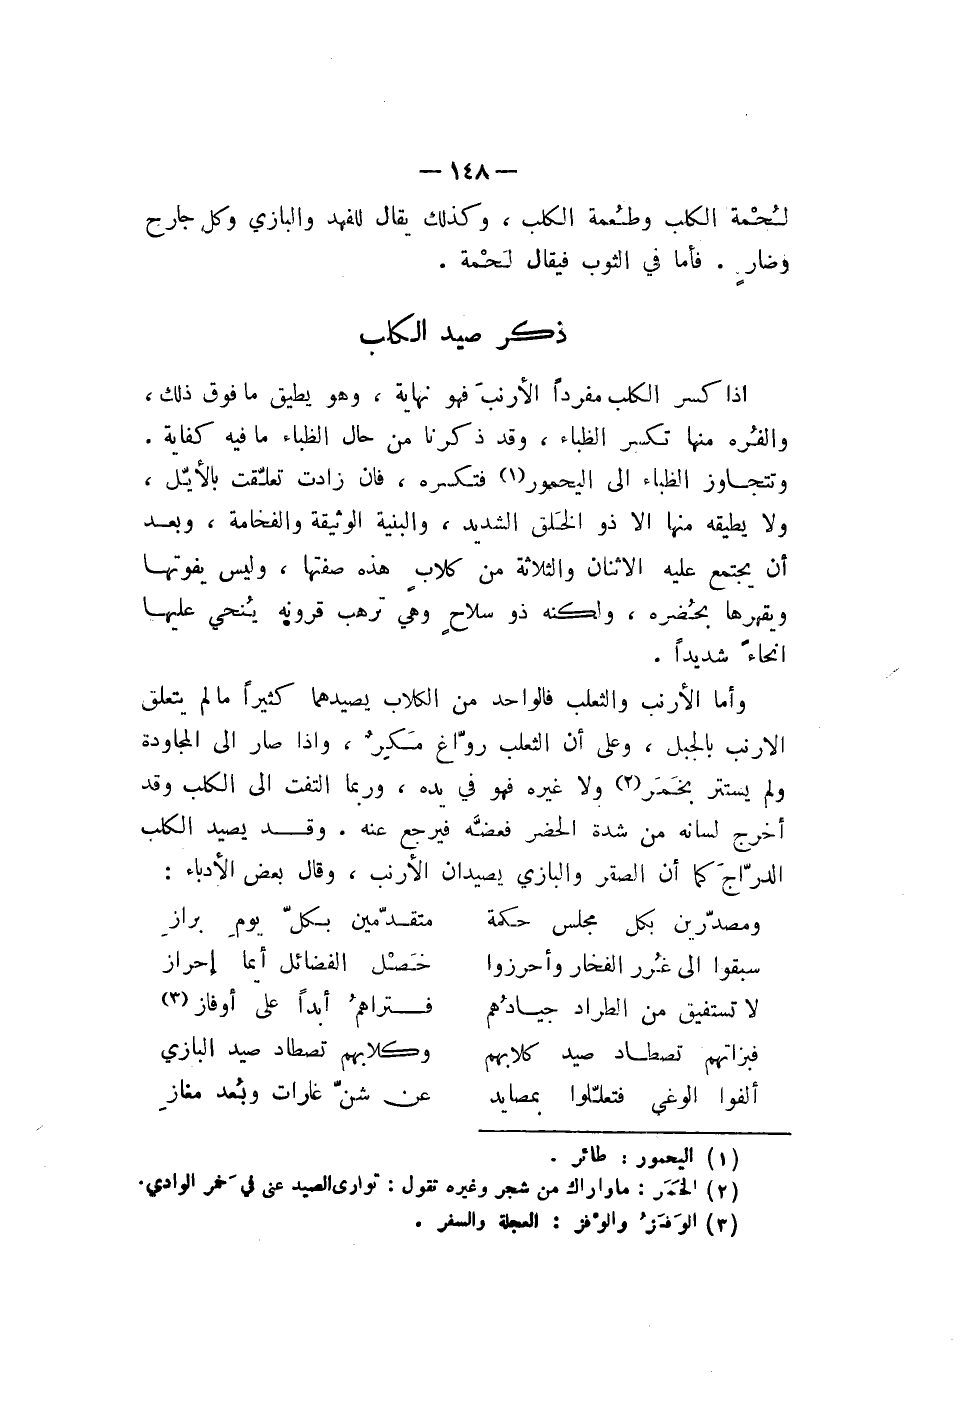 — ١٤٨ —
لُحْمة الكلب وطُعمة الكلب ، وكذلك يقال للفهد والبازي وكل جارح
وضارٍ . فأما في الثوب فيقال لَحْمة .
ذكر صيد الكلب
اذا كسر الكلب مفرداً الأرنبَ فهو نهاية ، وهو يطيق ما فوق ذلك ،
والفُره منها تكسر الظباء ، وقد ذكرنا من حال الظباء ما فيه كفاية .
وتتجاوز الظباء الى اليحمور(١) فتكسره ، فان زادت تعلّقت بالأيّل ،
ولا يطيقه منها الا ذو الخَلق الشديد ، والبنية الوثيقة والفخامة ، وبعد
أن يجتمع عليه الاثنان والثلاثة من كلابٍ هذه صفتها ، وليس يفوتها
ويقهرها بحُضره ، ولكنه ذو سلاحٍ وهي تَرهب قرونه يُنحي عليها
انحاءً شديداً .
وأما الأرنب والثعلب فالواحد من الكلاب يصيدهما كثيراً ما لم يتعلق
الارنب بالجبل ، وعلى أن الثعلب روّاغ مَكيرٌ ، واذا صار الى المجاودة
ولم يستتر بخَمَر(٢) ولا غيره فهو في يده ، وربما التفت الى الكلب وقد
أخرج لسانه من شدة الحضر فعضَّه فيرجع عنه . وقد يصيد الكلب
الدرّاجَ كما أن الصقر والبازي يصيدان الأرنب ، وقال بعض الأدباء :
ومصدّرين بكل مجلس حكمة متقدّمين بكلّ يومِ برازِ
سبقوا الى غُرر الفخار وأحرزوا خَصْل الفضائل أيما إحراز
لا تستفيق من الطراد جيادُهم فتراهمُ أبداً على أوفاز(٣)
فبزاتهم تصطاد صيد كلابهم وكلابهم تصطاد صيد البازي
ألفوا الوغي فتعلّلوا بمصايد عن شنّ غارات وبُعد مغازِ
(١) اليحمور : طائر .
(٢) الخَمَر : ماواراك من شجر وغيره تقول : توارى الصيد عنى في خَمر الوادي.
(٣) الوَفَزُ والوَفْز : العجلة والسفر .